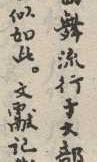 舞流行于大部
似如此。文獻記